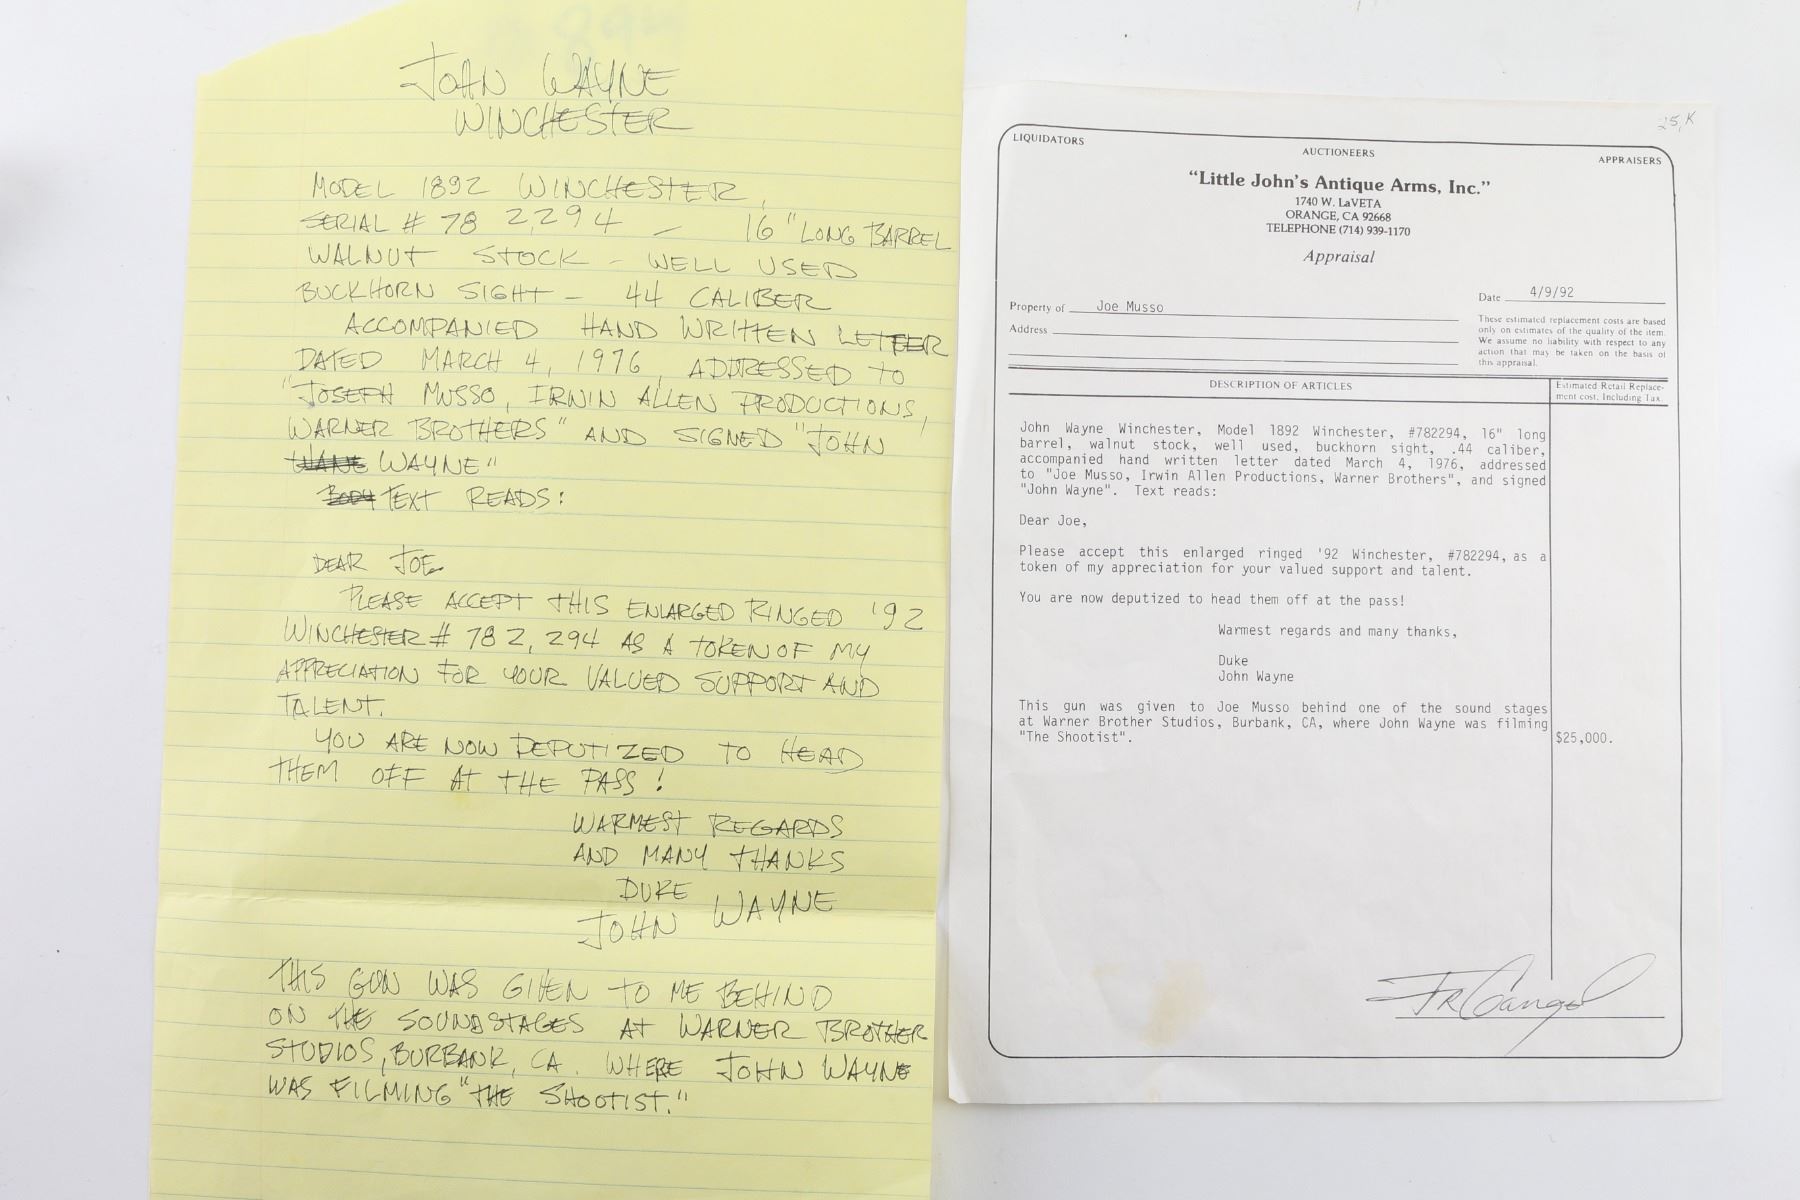 JOHN WAYNE
WINCHESTER
MODEL 1892 WINCHESTER,
SERIAL # 782,294 – 16" LONG BARREL
WALNUT STOCK – WELL USED
BUCKHORN SIGHT – 44 CALIBER
ACCOMPANIED HAND WRITTEN LETTER
DATED MARCH 4, 1976, ADDRESSED TO
"JOSEPH MUSSO, IRWIN ALLEN PRODUCTIONS,
WARNER BROTHERS" AND SIGNED "JOHN
WAYNE"
BODY TEXT READS:
DEAR JOE
PLEASE ACCEPT THIS ENLARGED RINGED '92
WINCHESTER # 782,294 AS A TOKEN OF MY
APPRECIATION FOR YOUR VALUED SUPPORT AND
TALENT.
YOU ARE NOW DEPUTIZED TO HEAD
THEM OFF AT THE PASS!
WARMEST REGARDS
AND MANY THANKS
DUKE
JOHN WAYNE
THIS GUN WAS GIVEN TO ME BEHIND
ON THE SOUNDSTAGES AT WARNER BROTHER
STUDIOS, BURBANK, CA. WHERE JOHN WAYNE
WAS FILMING "THE SHOOTIST."
25,K
LIQUIDATORS
AUCTIONEERS
APPRAISERS
"Little John's Antique Arms, Inc."
1740 W. LaVETA
ORANGE, CA 92668
TELEPHONE (714) 939-1170
Appraisal
Date 4/9/92
Property of Joe Musso
Address
These estimated replacement costs are based
only on estimates of the quality of the item.
We assume no liability with respect to any
action that may be taken on the basis of
this appraisal.
DESCRIPTION OF ARTICLES
Estimated Retail Replace-
ment cost, Including Tax.
John Wayne Winchester, Model 1892 Winchester, #782294, 16" long
barrel, walnut stock, well used, buckhorn sight, .44 caliber,
accompanied hand written letter dated March 4, 1976, addressed
to "Joe Musso, Irwin Allen Productions, Warner Brothers", and signed
"John Wayne". Text reads:
Dear Joe,
Please accept this enlarged ringed '92 Winchester, #782294, as a
token of my appreciation for your valued support and talent.
You are now deputized to head them off at the pass!
Warmest regards and many thanks,
Duke
John Wayne
This gun was given to Joe Musso behind one of the sound stages
at Warner Brother Studios, Burbank, CA, where John Wayne was filming
"The Shootist".
$25,000.